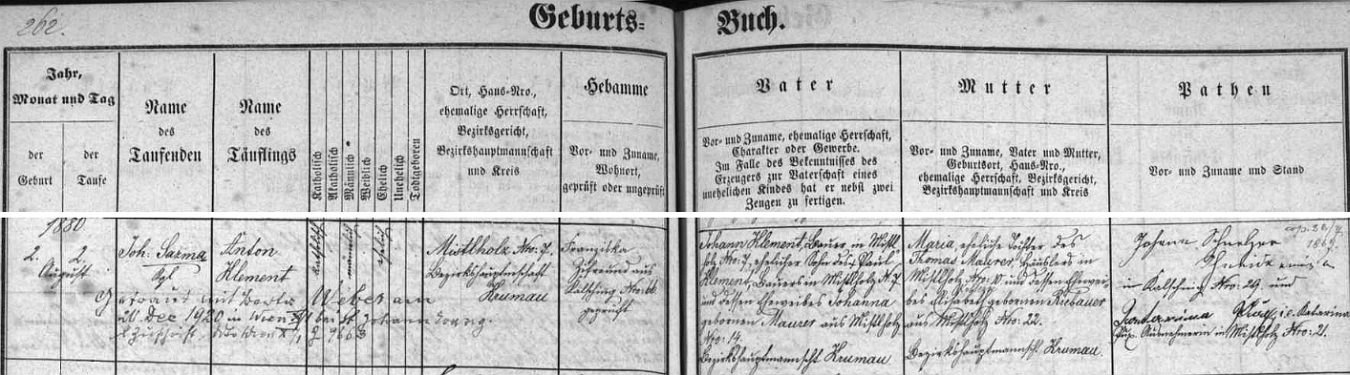 262.
Geburts-
Buch.
Jahr,
Monat und Tag
der
Geburt
der
Taufe
Name
des
Taufenden
Name
des
Täuflings
Katholisch
Akatholisch
Männlich
Weiblich
Ehelich
Unehelich
Todtgeboren
Ort, Haus-Nro.,
ehemalige Herrschaft,
Bezirksgericht,
Bezirkshauptmannschaft
und Kreis
Hebamme
Vor- und Zuname,
Wohnort,
geprüft oder ungeprüft
Vater
Vor- und Zuname, ehemalige Herrschaft,
Charakter oder Gewerbe.
Im Falle des Bekenntnisses des
Erzeugers zur Vaterschaft eines
unehelichen Kindes hat er nebst zwei
Zeugen zu fertigen.
Mutter
Vor- und Zuname, Vater und Mutter,
Geburtsort, Haus-Nro.,
ehemalige Herrschaft, Bezirksgericht,
Bezirkshauptmannschaft und Kreis
Pathen
Vor- und Zuname und Stand
1880
2. 2.
August
Joh. Sazma
Kpl
Anton
Klement
katholisch
männlich
ehelich
Mistlholz Nro: 7.
Bezirkshauptmannschaft
Krumau
Franziska
aus
Kalsching Nro: 66
geprüft
Getraut mit Berta Weber am
20 Dec 1920 in Wien bei St. Johann
Johann Klement, Bauer in Mistl-
holz Nro: 7, ehelicher Sohn des Paul
Klement, Bauers in Mistlholz N. 7
und dessen Eheweibes Johanna
gebornen Maurer aus Mistlholz
Nro: 14.
Bezirkshauptmannscht Krumau
Maria, eheliche Tochter des
Thomas Maurer, Häuslers in
Mistlholz Nro: und dessen Ehewei-
bes Elisabeth gebornen
aus Mistlholz Nro: 22.
Bezirkshauptmannsch. Krumau.
cop. 1869.
Johann
Schneider
in Kalsching Nro: 29. und
Katarina i.e. Katarina
Ausnehmerin in Mistlholz Nro: 21.